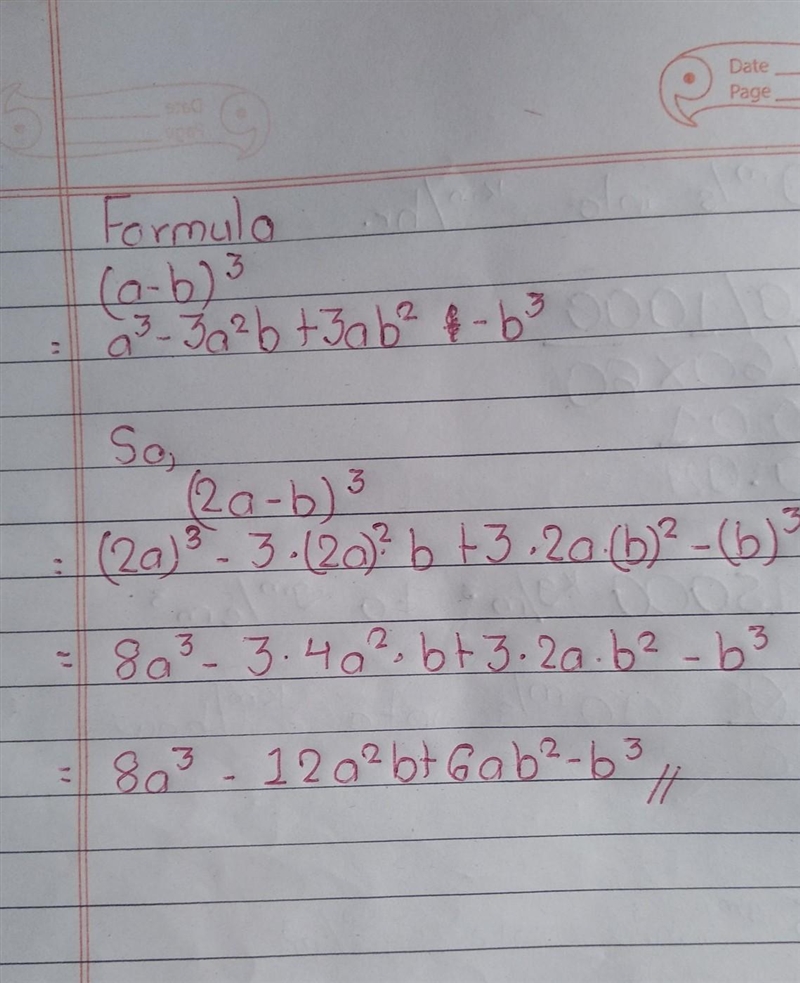 Date
Page
Formula
(a-b)³
= a³ - 3a²b + 3ab² - b³
So,
(2a-b)³
= (2a)³ - 3·(2a)²·b + 3·2a·(b)² - (b)³
= 8a³ - 3·4a²·b + 3·2a·b² - b³
= 8a³ - 12a²b + 6ab² - b³ //